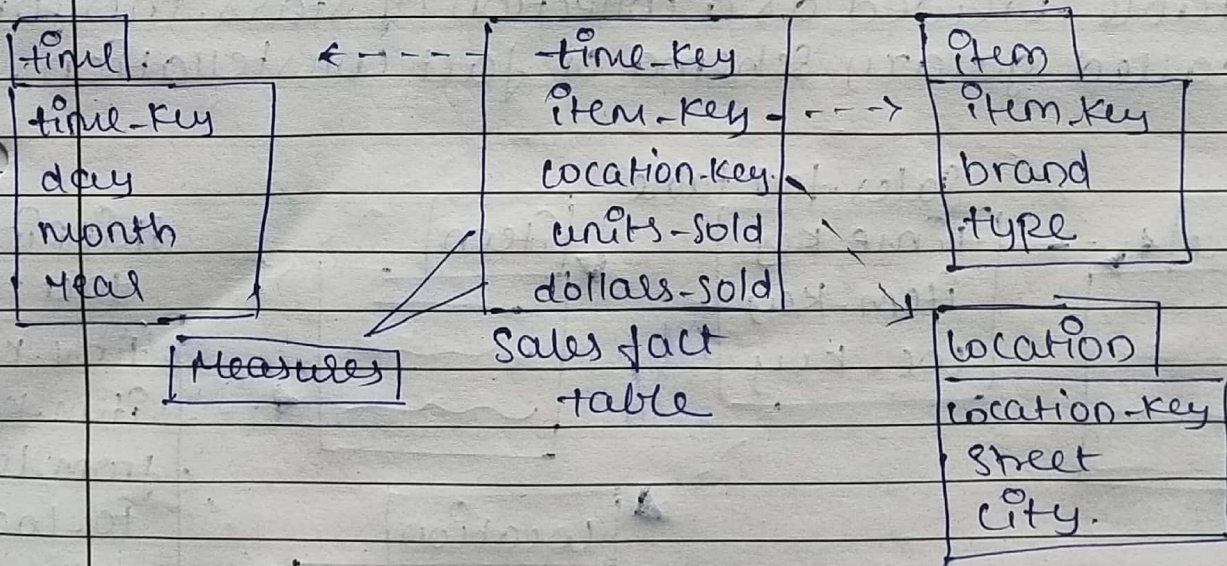 time
time-key
day
month
year
Measures
time-key
item-key
location-key
units-sold
dollars-sold
Sales fact
table
item
item key
brand
type
location
location-key
street
city.